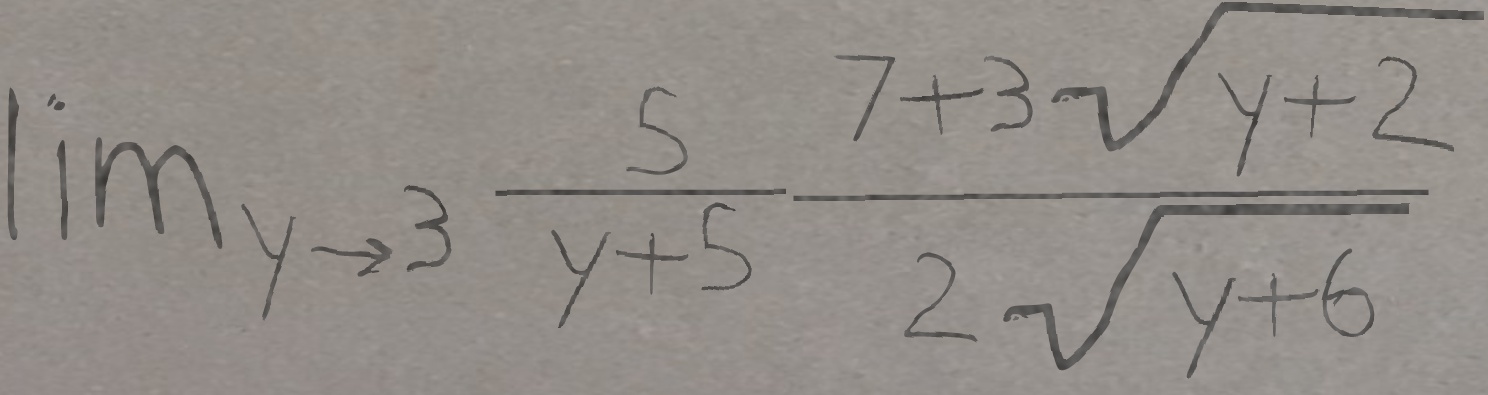 \lim_{y \to 3} \frac{5}{y+5} \frac{7+3\sqrt{y+2}}{2\sqrt{y+6}}